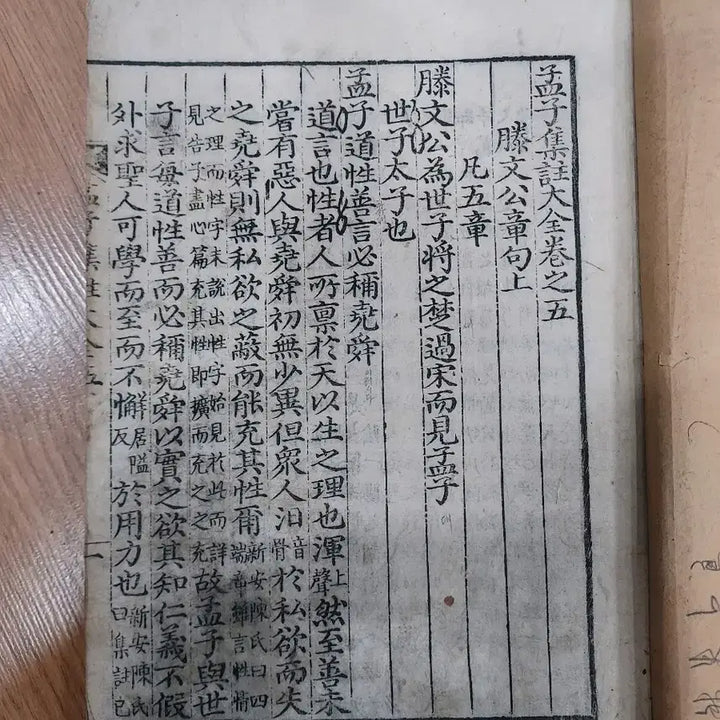 孟子集註大全卷之五
滕文公章句上
凡五章
滕文公為世子將之楚過宋而見孟子
世子太子也
孟子道性善言必稱堯舜
道言也性者人所稟於天以生之理也渾上聲然至善未
嘗有惡人與堯舜初無少異但衆人汨音骨於私欲而失
之堯舜則無私欲之蔽而能充其性爾新安陳氏曰四端章雖言性情
之理而性字未說出性字始見於此而詳見告子盡心篇充其性即擴而充之之充故孟子與世
子言每道性善而必稱堯舜以實之欲其知仁義不假
外求聖人可學而至而不懈居隘反於用力也新安陳氏曰集註已
孟子集註大全五